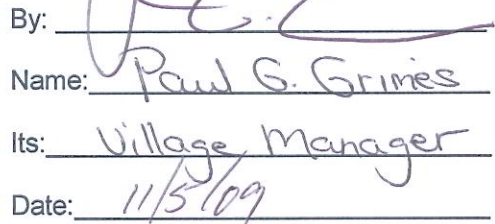 By:
Name: Paul G. Grimes
Its: Village Manager
Date: 11/5/09